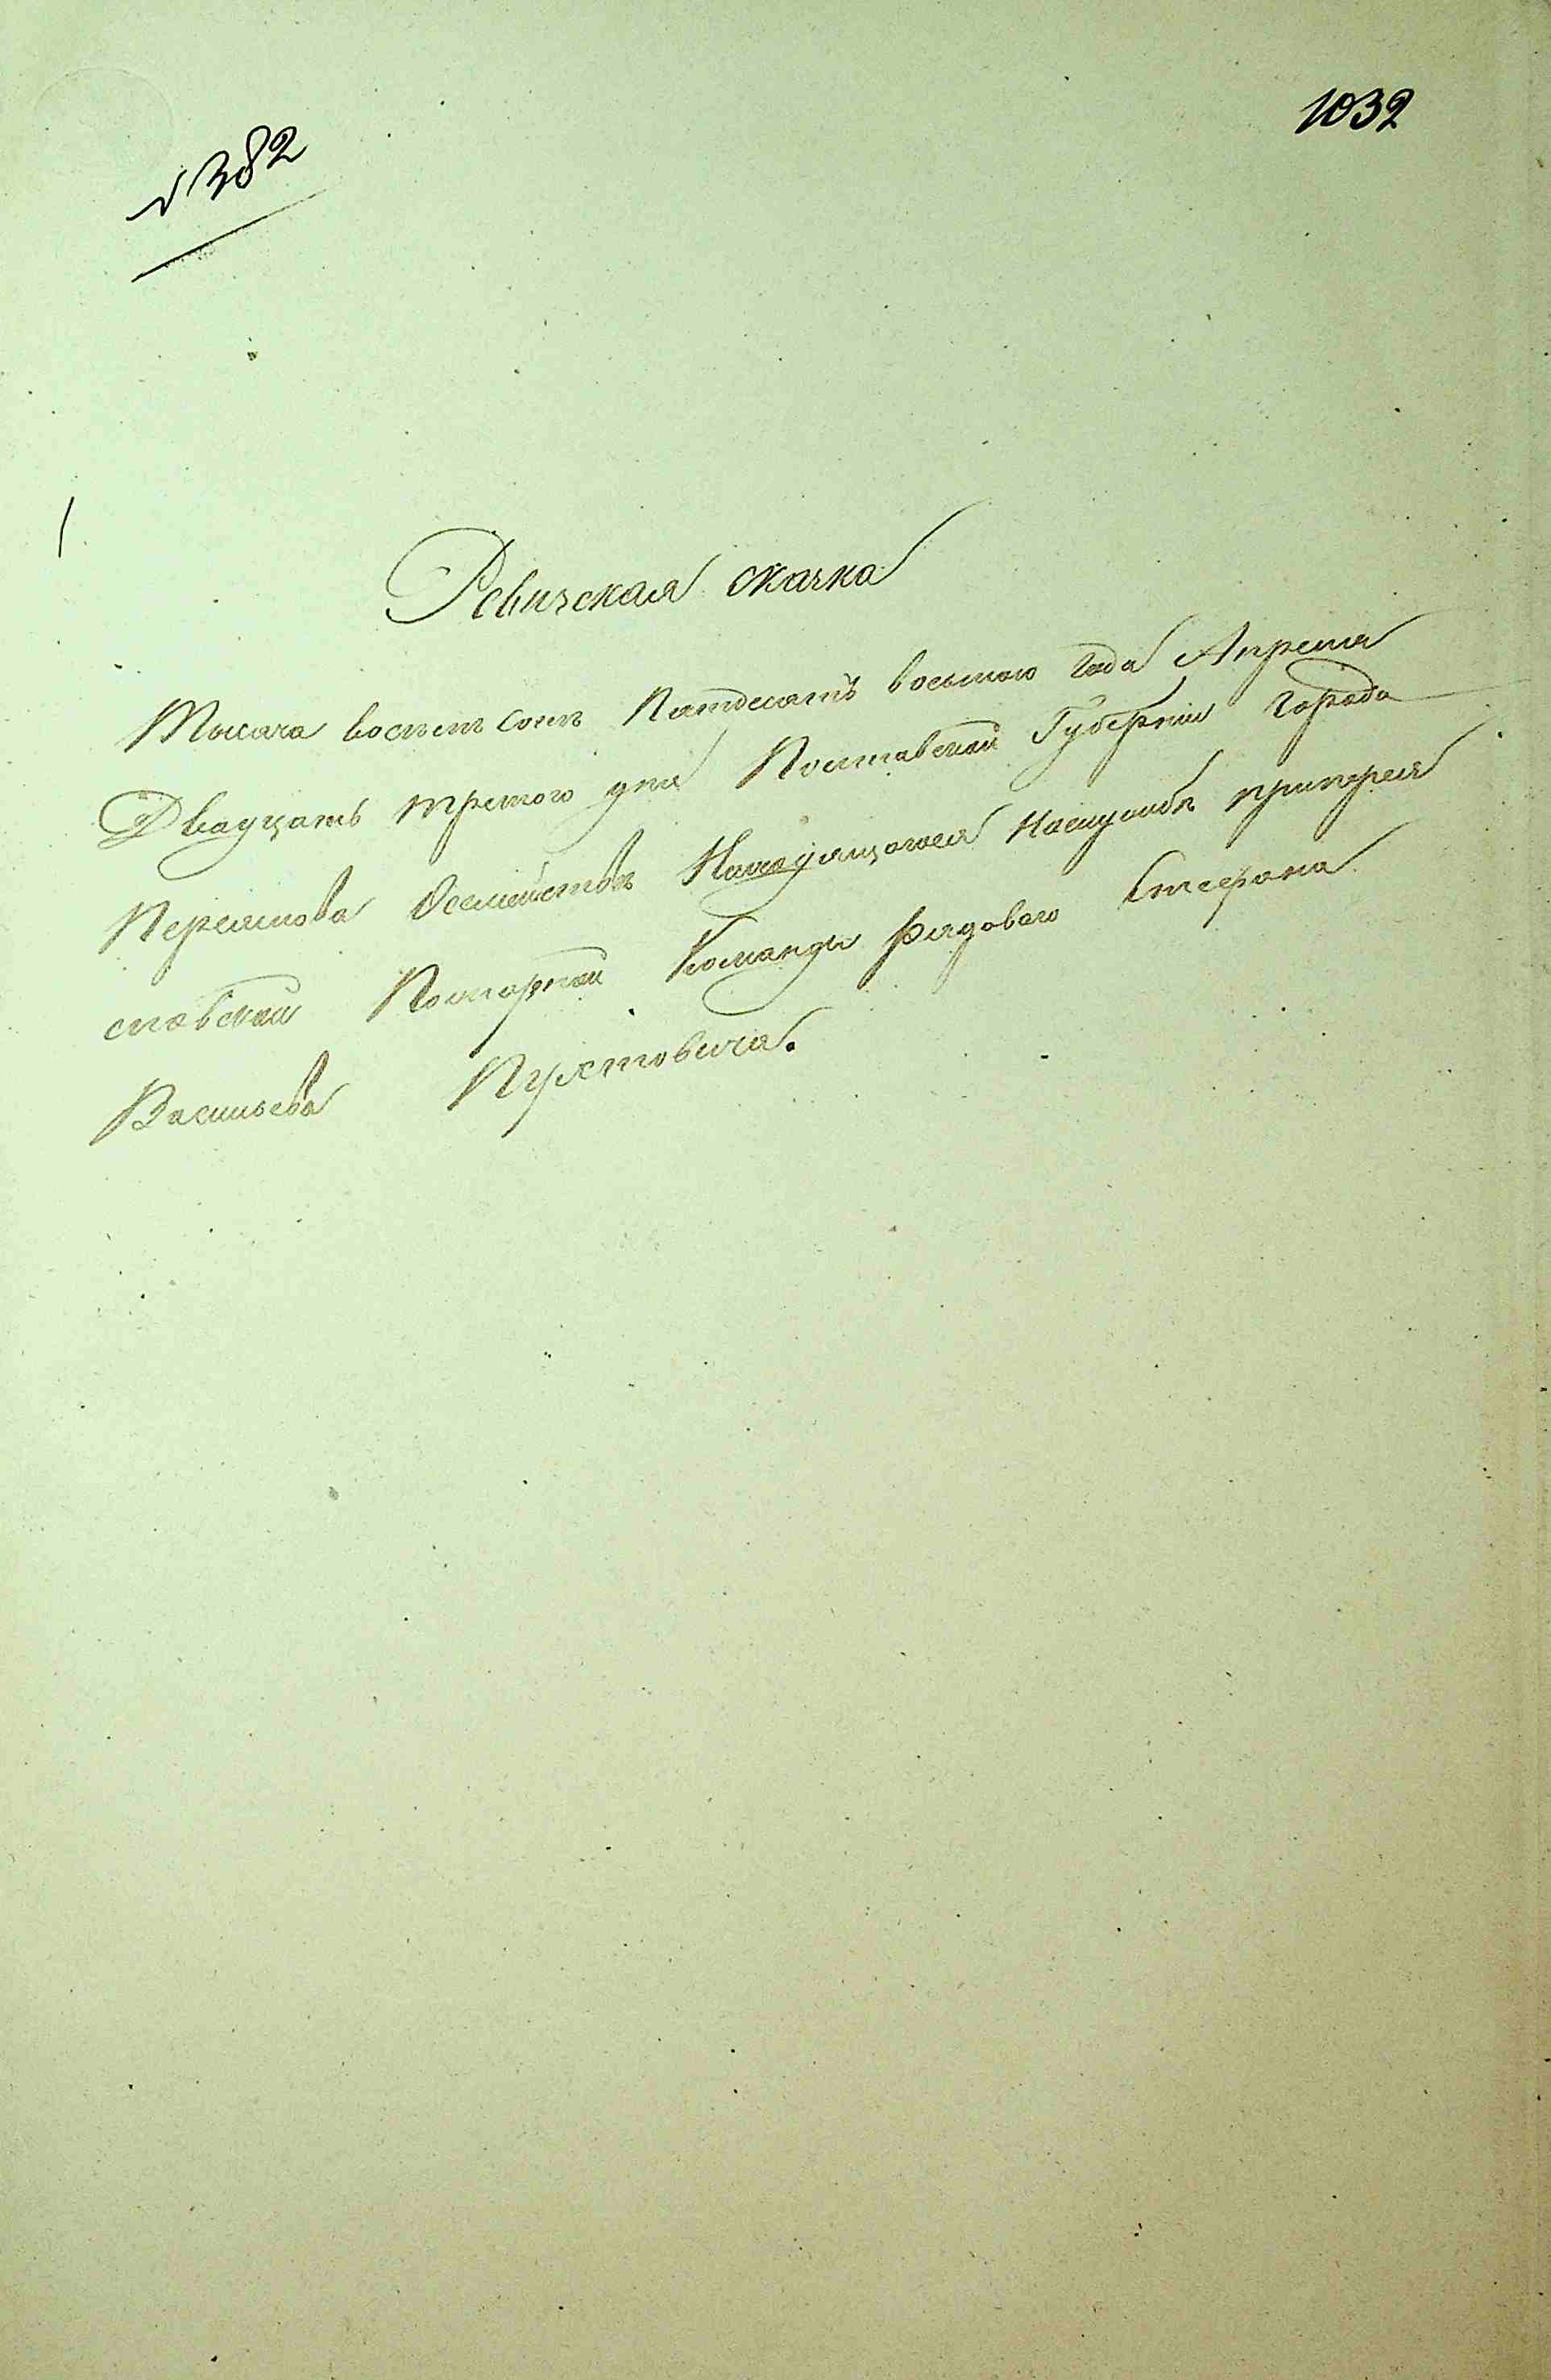 1032
№ 382
Ревизская сказка
Тысяча восемь сотъ Пятдесятъ восьмого Года Апреля
Двадцать третого дня Полтавской Губернии Города
Переяслова Осемействе Находящагося Наслужбе припереяс
славской Пожарной Команды рядового Стефана
Васильева Пухтовича.